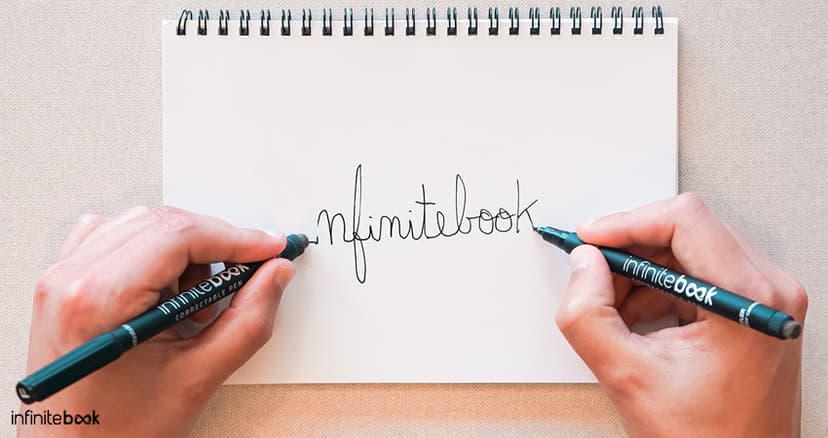 nfinitebook
infinitebook
CORRECTABLE PEN
infinitebook
infinitebook